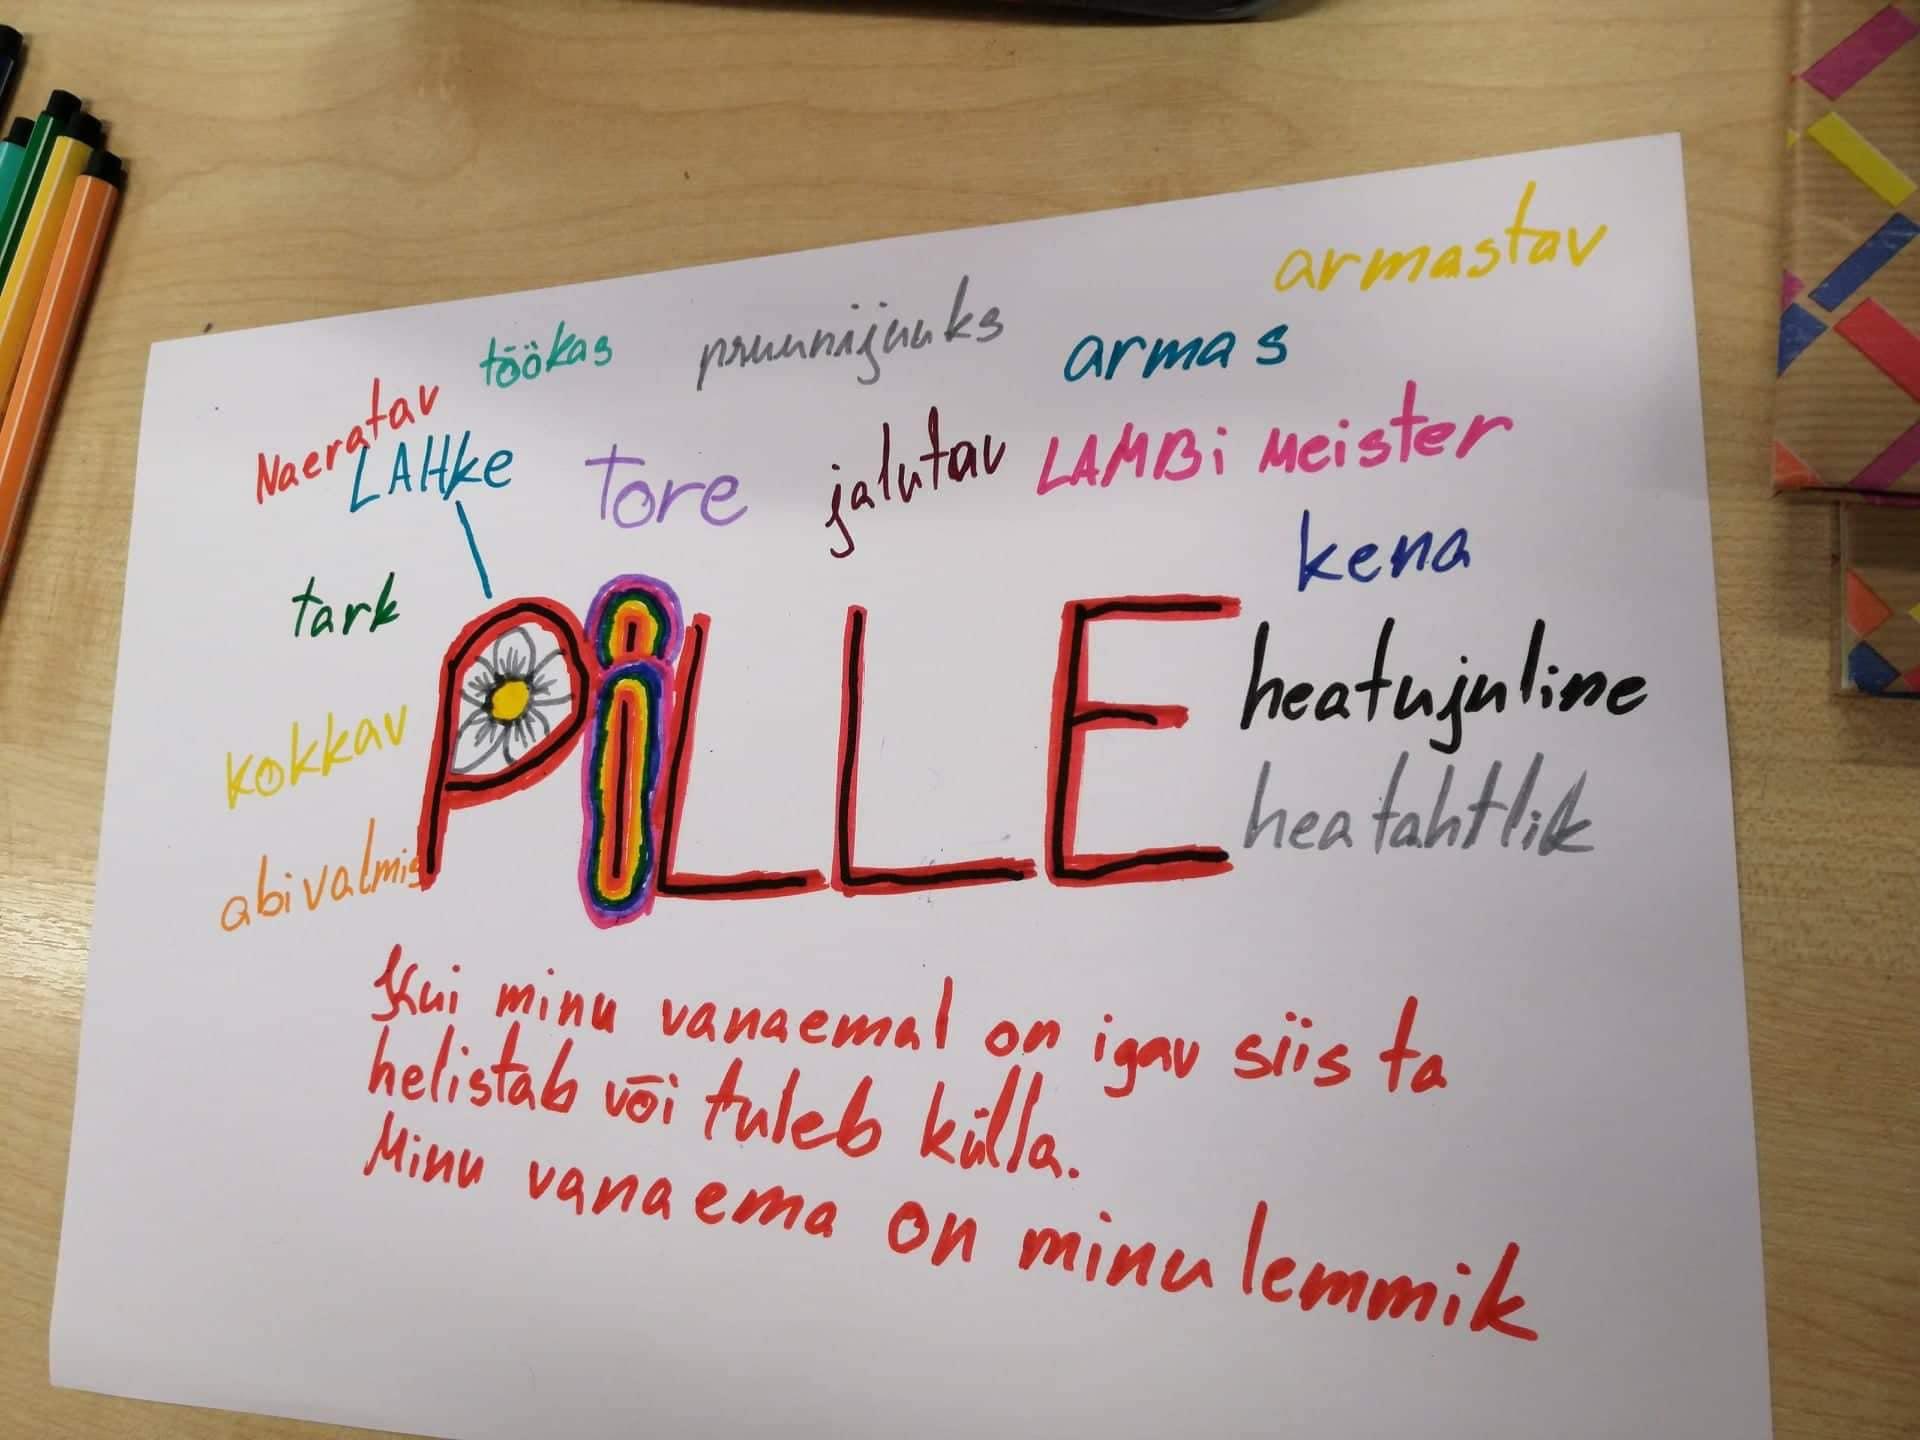 armastav
töökas pruunijuuks armas
Naeratav
LAHke Tore jalutav LAMBi Meister
kena
tark
PiLLE
heatujuline
kokkav
heatahtlik
abivalmis
Kui minu vanaemal on igav siis ta
helistab või tuleb külla.
Minu vanaema on minu lemmik